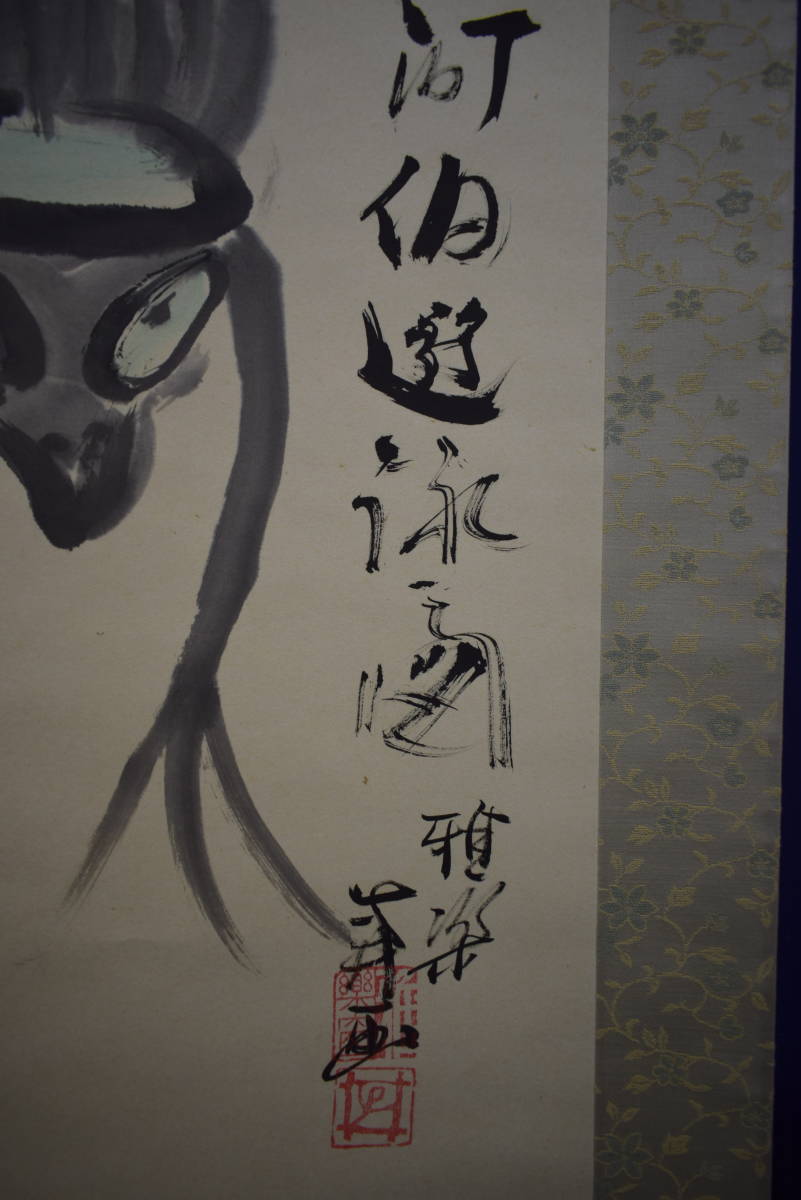 河伯遊泳之図
雅楽
華画